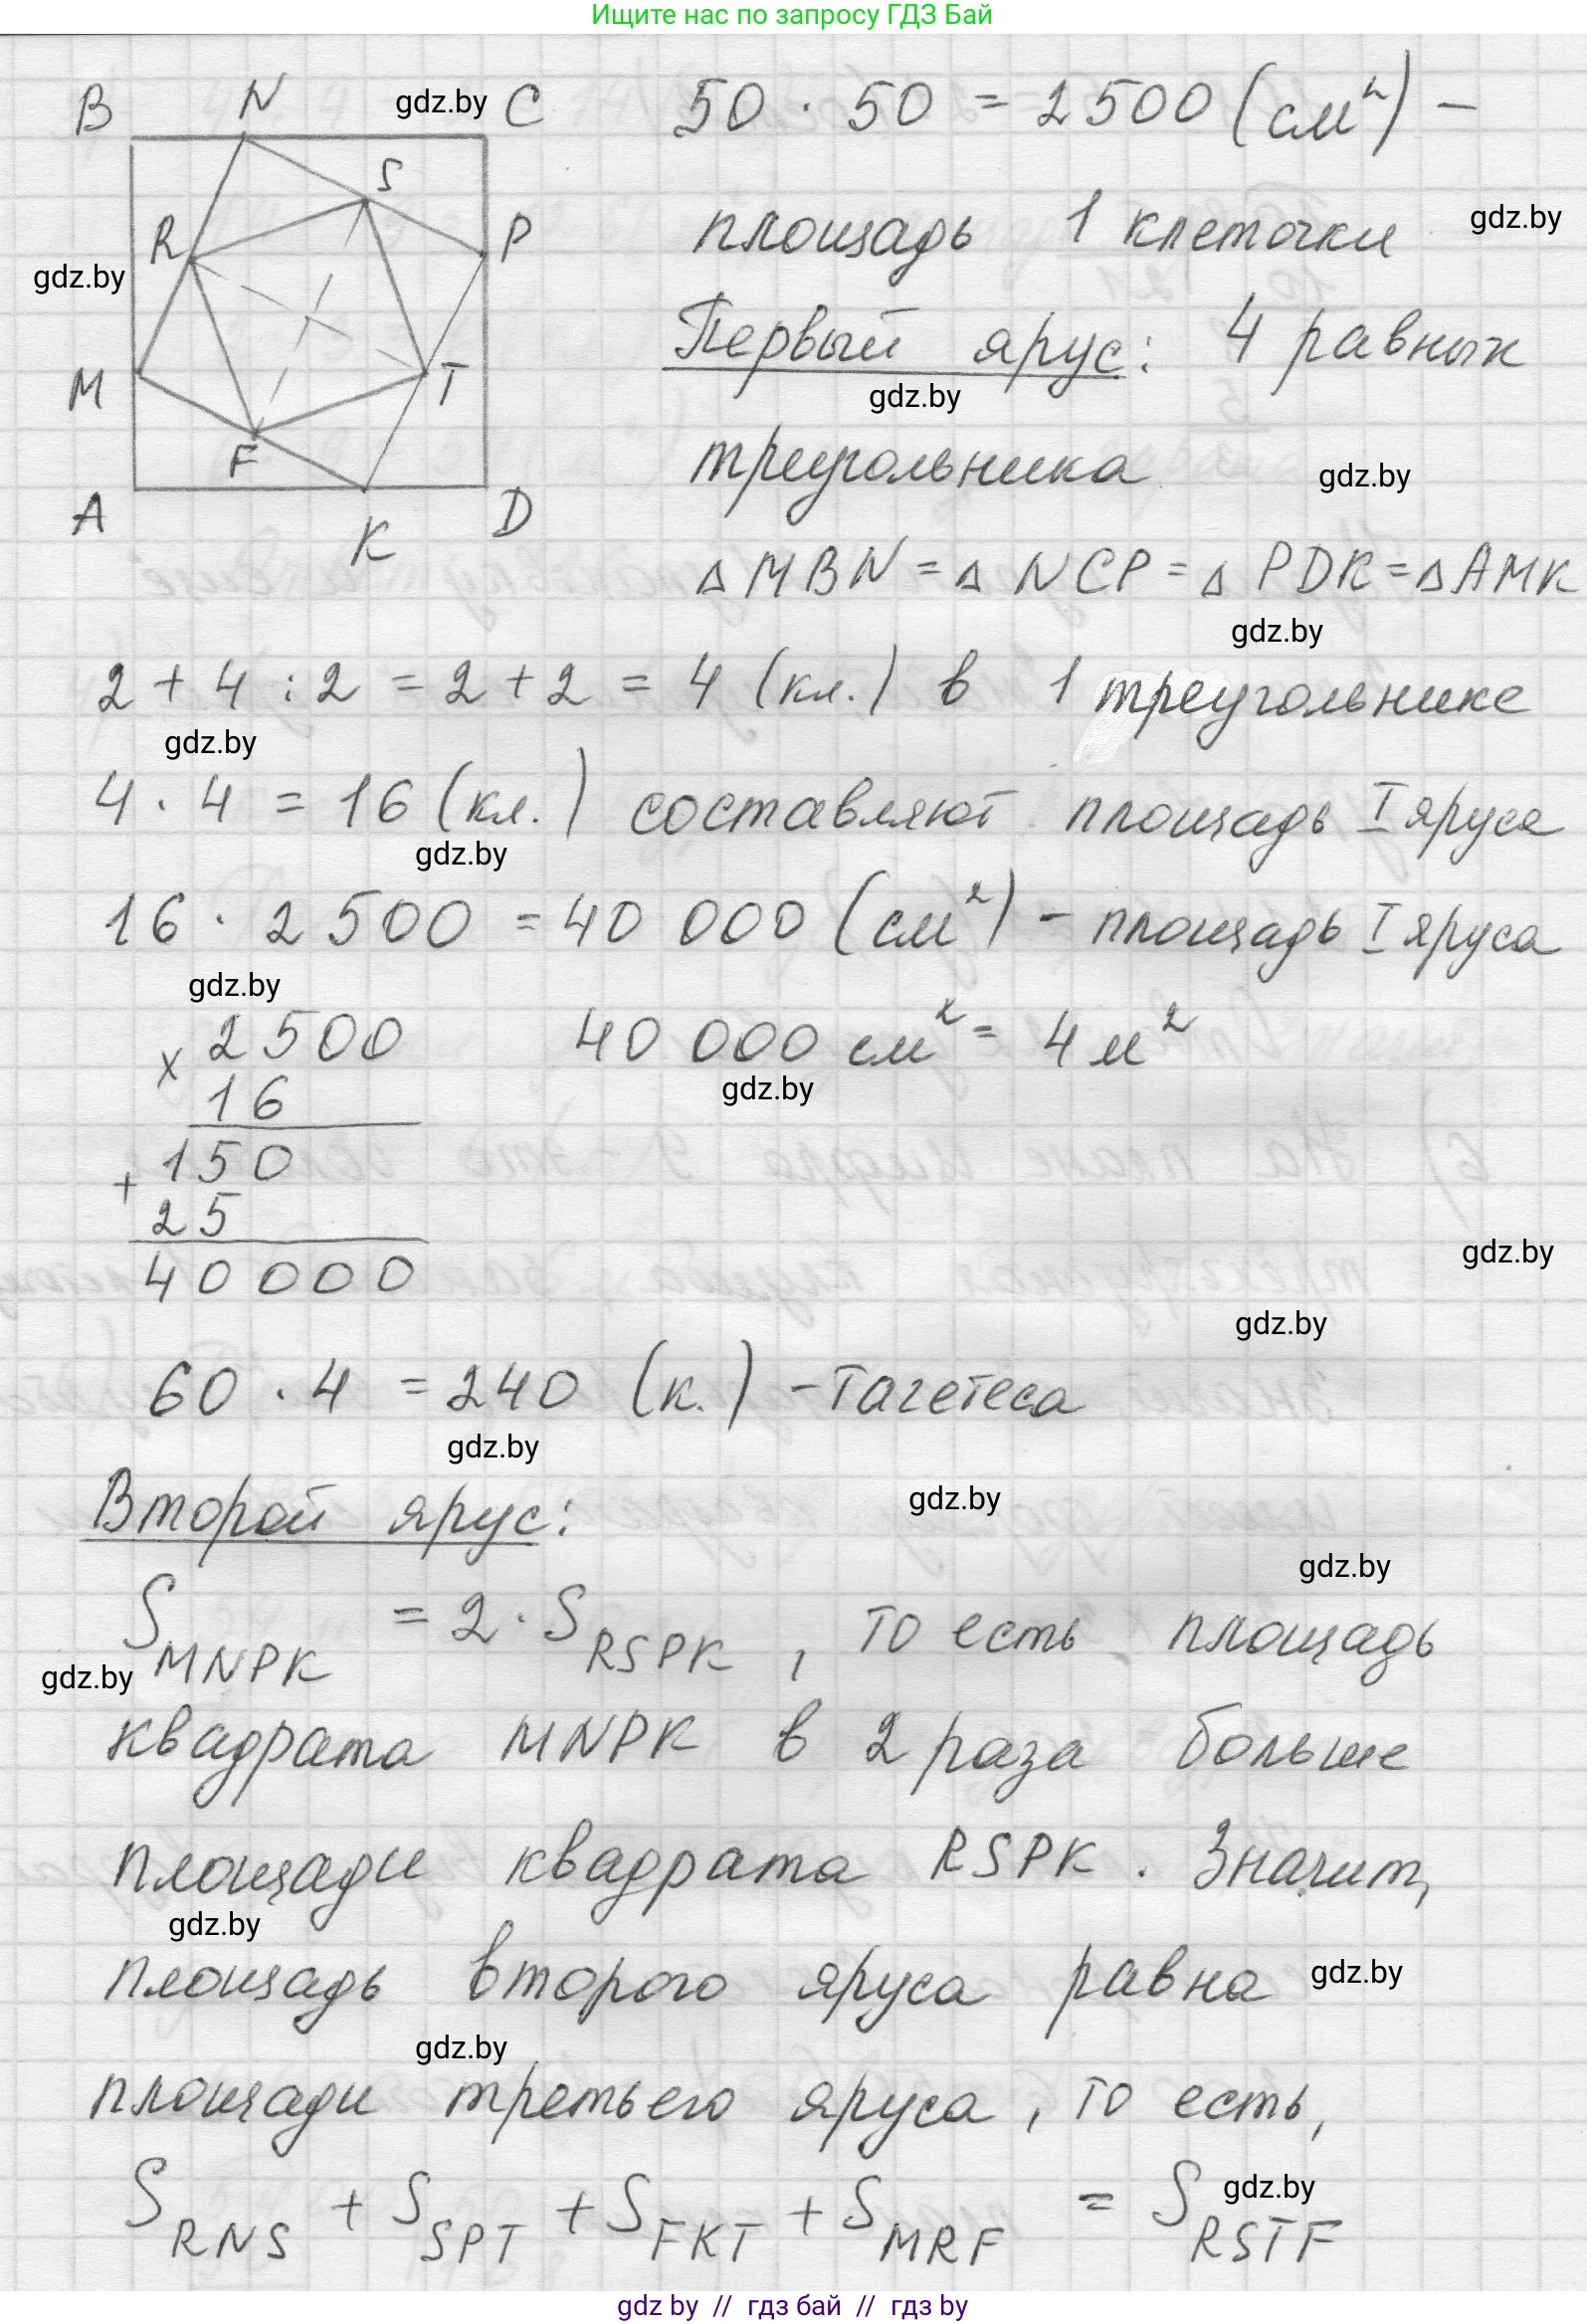 Ищите нас по запросу ГДЗ Бай
B N gdz.by C
S
R P
gdz.by
M T
F
A K D
50 · 50 = 2500 (см²) –
площадь 1 клеточки gdz.by
Первый ярус: 4 равных
gdz.by
треугольника gdz.by
Δ MBN = Δ NCP = Δ PDK = Δ AMK
gdz.by
2 + 4 : 2 = 2 + 2 = 4 (кл.) в 1 треугольнике
gdz.by
4 · 4 = 16 (кл.) составляют площадь I яруса
gdz.by
16 · 2500 = 40 000 (см²) – площадь I яруса
gdz.by
x 2500 40 000 см² = 4 м²
16 gdz.by
+ 150
25
40000 gdz.by
gdz.by
60 · 4 = 240 (к.) – тагетеса
gdz.by
Второй ярус: gdz.by
gdz.by
S MNPK = 2 · S RSPK, то есть площадь
gdz.by
квадрата MNPK в 2 раза больше
площади квадрата RSPK. Значит,
gdz.by
площадь второго яруса равна gdz.by
gdz.by
площади третьего яруса, то есть,
S RNS + S SPT + S FKT + S MRF = S RSTF gdz.by
gdz by // гдз бай // gdz by